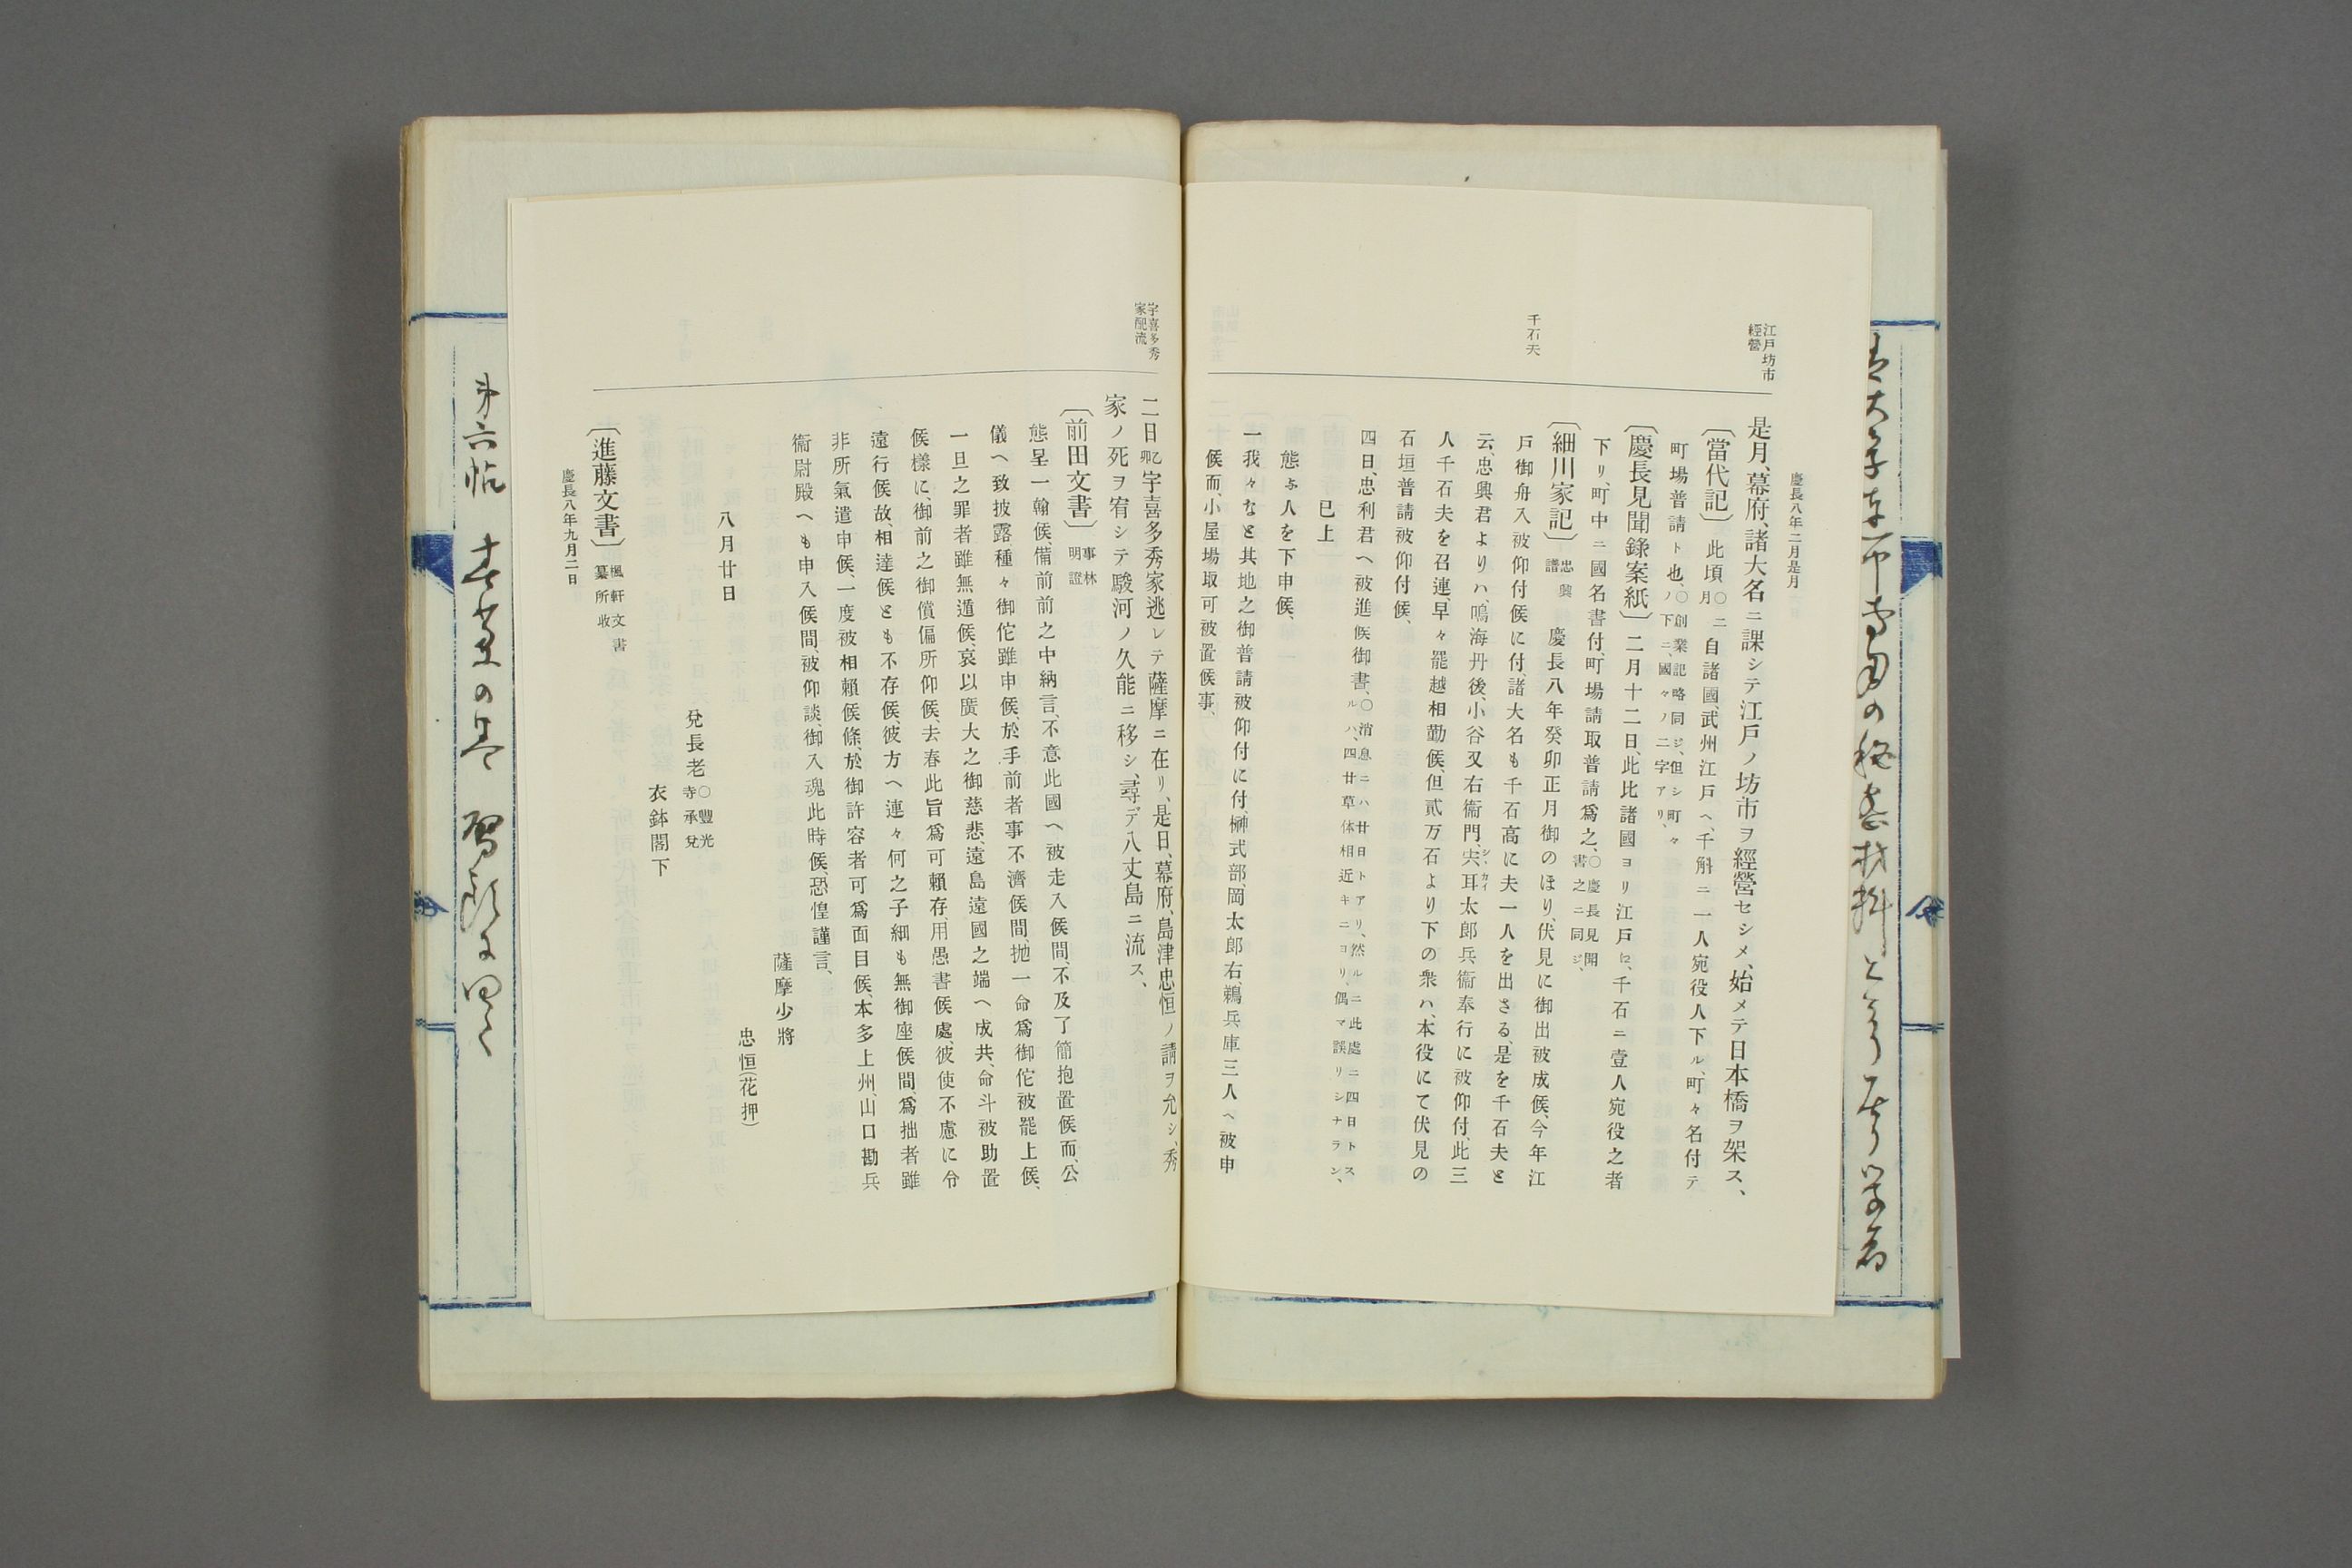 慶長八年二月是月
江戸坊市
經營
千石夫
是月、幕府、諸大名ニ課シテ江戸ノ坊市ヲ經營セシメ、始メテ日本橋ヲ架ス、
〔當代記〕此頃〇二月自諸國、武州江戸ヘ、千斛ニ一人宛役人下ル、町々名付テ
町場普請ト也、〇創業記略同ジ、但シ町々ノ下ニ、國々ノ二字アリ、
〔慶長見聞錄案紙〕二月十二日、此比諸國ヨリ江戸ヒ、千石ニ壹人宛役之者
下リ、町中ニ國名書付、町場請取普請爲之、〇慶長見聞書之ニ同ジ、
〔細川家記〕忠興譜 慶長八年癸卯正月御のほり、伏見に御出被成候、今年江
戸御舟入被仰付候に付、諸大名も千石高に夫一人を出さる、是を千石夫と
云、忠興君よりハ、鳴海丹後、小谷又右衞門、宍耳太郎兵衞奉行に被仰付、此三
人千石夫を召連、早々罷越相勤候、但貳万石より下の衆ハ、本役にて伏見の
石垣普請被仰付候、
四日、忠利君ヘ被進候御書、〇消息ニハ廿日トアリ、然ルニ此處ニ四日トスルハ、四廿草体相近キニヨリ、偶マ誤リシナラン、
已上
態ゟ人を下申候、
一我々なと其地之御普請被仰付に付、榊式部、岡太郎右、鵜兵庫三人ヘ被申
候而、小屋場取可被置候事、
宇喜多秀
家配流
二日乙卯宇喜多秀家逃レテ薩摩ニ在リ、是日、幕府、島津忠恒ノ請ヲ允シ、秀
家ノ死ヲ宥シテ駿河ノ久能ニ移シ、尋デ八丈島ニ流ス、
〔前田文書〕事林明證
態呈一翰候、備前前之中納言、不意此國ヘ被走入候間、不及了簡抱置候而、公
儀ヘ致披露、種々御佗雖申候、於手前者事不濟候間、抛一命爲御佗被罷上候、
一旦之罪者雖無遁候、哀以廣大之御慈悲、遠島遠國之端ヘ成共、命斗被助置
候樣に、御前之御償偏所仰候、去春此旨爲可賴存、用愚書候處、彼使不慮に令
遠行候故、相達候とも不存候、彼方ヘ連々何之子細も無御座候間、爲拙者雖
非所氣遣申候、一度被相賴候條、於御許容者可爲面目候、本多上州、山口勘兵
衞尉殿ヘも申入候間、被仰談、御入魂此時候、恐惶謹言、
薩摩少將
忠恒(花押)
八月廿日
兌長老〇豐光寺承兌
衣鉢閣下
〔進藤文書〕楓軒文書纂所收
慶長八年九月二日